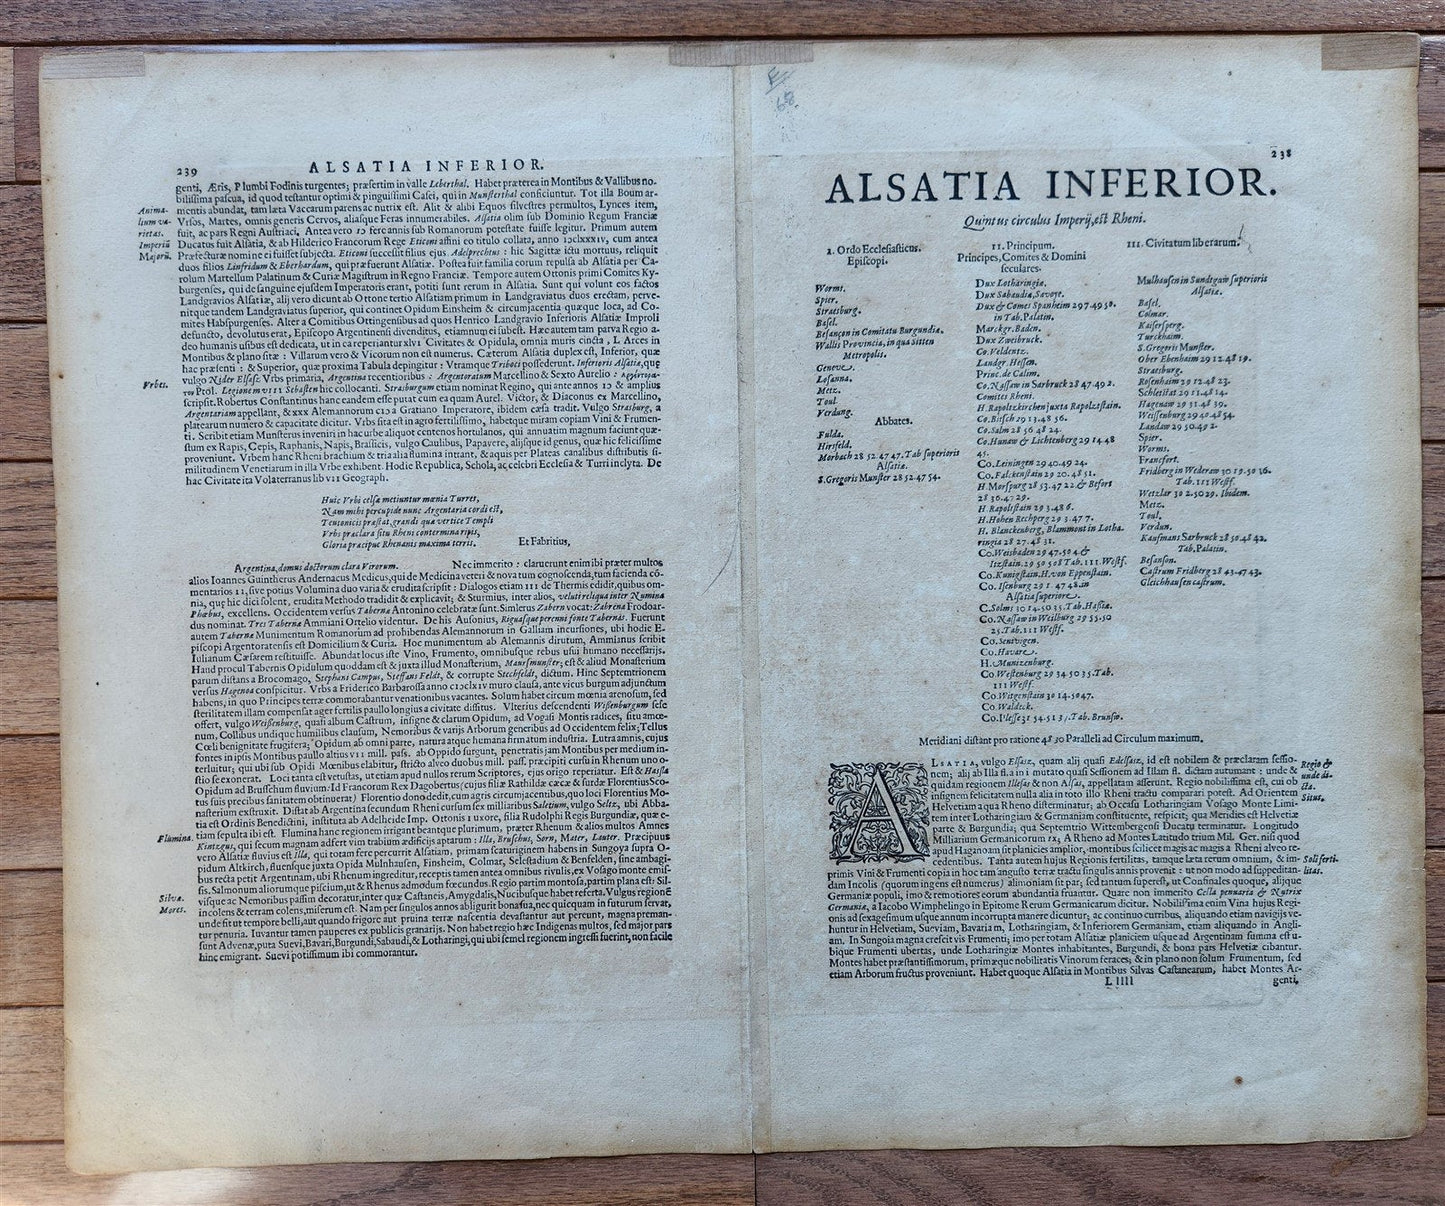 E
68.
239
ALSATIA INFERIOR.
genti, Æris, Plumbi Fodinis turgentes; præsertim in valle Leberthal. Habet præterea in Montibus & Vallibus no-
bilissima pascua, id quod testantur optimi & pinguissimi Casei, qui in Munsterthal conficiuntur. Tot illa Boum ar-
mentis abundat, tam læta Vaccarum parens ac nutrix est. Alit & alibi Equos silvestres permultos, Lynces item,
Vrsos, Martes, omnis generis Cervos, aliasque Feras innumerabiles. Alsatia olim sub Dominio Regum Franciæ
fuit, ac pars Regni Austriaci. Antea vero
Ducatus fuit Alsatia, & ab Hilderico Francorum Rege Eticoni affini eo titulo collata, anno
Præfecturæ nomine ei fuisset subjecta. Eticoni successit filius ejus Adelprechtus: hic Sagittæ ictu mortuus, reliquit
duos filios Linfridum & Eberhardum, qui præfuerunt Alsatiæ. Postea fuit familia eorum repulsa ab Alsatia per Ca-
rolum Martellum Palatinum & Curiæ Magistrum in Regno Franciæ. Tempore autem Ottonis primi Comites Ky-
burgenses, qui de sanguine ejusdem Imperatoris erant, potiti sunt rerum in Alsatia. Sunt qui volunt eos factos
Landgravios Alsatiæ, alij vero dicunt ab Ottone tertio Alsatiam primum in Landgraviatus duos erectam, perve-
nitque tandem Landgraviatus superior, qui continet Opidum Einsheim & circumjacentia quæque loca, ad Co-
mites Habspurgenses. Alter a Comitibus Ottingensibus ad quos Henrico Landgravio Inferioris Alsatiæ Improli
defuncto, devolutus erat, Episcopo Argentinensi divenditus, etiamnum ei subest. Hæc autem tam parva Regio a-
deo humanis usibus est dedicata, ut in ea reperiantur XLVI Civitates & Opidula, omnia muris cincta, L Arces in
Montibus & plano sitæ: Villarum vero & Vicorum non est numerus. Cæterum Alsatia duplex est, Inferior, quæ
hac præsenti: & Superior, quæ proxima Tabula depingitur: Vtramque Triboci possederunt. Inferioris Alsatiæ, quę
vulgo Nider Elsasz Vrbs primaria, Argentina recentioribus: Argentoratum Marcellino & Sexto Aurelio:
Ptol. Legionem VIII Sebasten hic collocanti. Strasburgum etiam nominat Regino, qui ante annos & amplius
scripsit. Robertus Constantinus hanc eandem esse putat cum ea quam Aurel. Victor, & Diaconus ex Marcellino,
Argentariam appellant, & XXX Alemannorum Gratiano Imperatore, ibidem cæsa tradit. Vulgo Strasburg, a
platearum numero & capacitate dicitur. Vrbs sita est in agro fertilissimo, habetque miram copiam Vini & Frumen-
ti. Scribit etiam Munsterus inveniri in hac urbe aliquot centenos hortulanos, qui annuatim magnum faciunt quæ-
stum ex Rapis, Cepis, Raphanis, Napis, Brassicis, vulgo Caulibus, Papavere, alijsque id genus, quæ hic felicissime
proveniunt. Vrbem hanc Rheni brachium & tria alia flumina intrant, & aquis per Plateas canalibus distributis si-
militudinem Venetiarum in illa Vrbe exhibent. Hodie Republica, Schola, ac celebri Ecclesia & Turri inclyta. De
hac Civitate ita Volaterranus lib VII Geograph.
Anima-
lium va-
rietas.
Imperiū
Majorū.
Vrbes.
Huic Vrbi celsæ metiuntur mœnia Turres,
Nam mihi percupide nunc Argentaria cordi est,
Teutonicis præstat, grandi quæ vertice Templi
Vrbs præclara situ Rheni contermina ripis,
Gloria præcipue Rhenanis maxima terris.
Et Fabritius,
Argentina, domus doctorum clara Virorum.
Nec immerito: claruerunt enim ibi præter multos
alios Ioannes Guintherus Andernacus Medicus, qui de Medicina veteri & nova tum cognoscenda, tum facienda cō-
mentarios II, sive potius Volumina duo varia & erudita scripsit: Dialogos etiam III de Thermis edidit, quibus om-
nia, quę hic dici solent, erudita Methodo tradidit & explicavit; & Sturmius, inter alios, veluti reliqua inter Numina
Phœbus, excellens. Occidentem versus Tabernæ Antonino celebratæ sunt. Simlerus Zabern vocat: Zabrena Frodoar-
dus nominat. Tres Tabernæ Ammiani Ortelio videntur. De his Ausonius, Riguasque perenni fonte Tabernas. Fuerunt
autem Tabernæ Munimentum Romanorum ad prohibendas Alemannorum in Galliam incursiones, ubi hodie E-
piscopi Argentoratensis est Domicilium & Curia. Hoc munimentum ab Alemannis dirutum, Ammianus scribit
Iulianum Cæsarem restituisse. Abundat locus iste Vino, Frumento, omnibusque rebus usui humano necessarijs.
Haud procul Tabernis Opidulum quoddam est & juxta illud Monasterium, Maursmunster; est & aliud Monasterium
parum distans a Brocomago, Stephans Campus, Steffans Feldt, & corrupte Stechfeldt, dictum. Hinc Septemtrionem
versus Hagenoa conspicitur. Vrbs a Friderico Barbarossa anno muro clausa, ante vicus burgum adjunctum
habens, in quo Principes terræ commorabantur venationibus vacantes. Solum habet circum mœnia arenosum, sed
sterilitatem illam compensat ager fertilis paullo longius a civitate dissitus. Vlterius descendenti Weissenburgum sese
offert, vulgo Weissenburg, quasi album Castrum, insigne & clarum Opidum, ad Vogasi Montis radices, situ amœ-
num, Collibus undique humilibus clausum, Nemoribus & varijs Arborum generibus ad Occidentem felix; Tellus
Cœli benignitate frugifera; Opidum ab omni parte, natura atque humana firmatum industria. Lutra amnis, cujus
fontes in ipsis Montibus paullo altius VII mill. pass. ab Oppido surgunt, penetratis jam Montibus per medium in-
terluitur; qui ubi sub Opidi Mœnibus elabitur, stricto alveo duobus mill. pass. præcipiti cursu in Rhenum uno o-
stio se exonerat. Loci tanta est vetustas, ut etiam apud nullos rerum Scriptores, ejus origo reperiatur. Est & Haisla
Opidum ad Bruschum fluvium. Id Francorum Rex Dagobertus (cujus filiæ Rathildæ cæcæ & surdæ Florentius Sco-
tus suis precibus sanitatem obtinuerat) Florentio dono dedit, cum agris circumjacentibus, quo loci Florentius Mo-
nasterium exstruxit. Distat ab Argentina secundum Rheni cursum sex milliaribus Saletium, vulgo Seltz, ubi Abba-
tia est Ordinis Benedictini, instituta ab Adelheide Imp. Ottonis I uxore, filia Rudolphi Regis Burgundiæ, quæ e-
tiam sepulta ibi est. Flumina hanc regionem irrigant beantque plurimum, præter Rhenum & alios multos Amnes
Kintzgus, qui secum magnam adfert vim trabium ædificijs aptarum: Illa, Bruschus, Sorn, Mater, Lauter. Præcipuus
vero Alsatiæ fluvius est Illa, qui totam fere percurrit Alsatiam, primam scaturiginem habens in Sungoya supra O-
pidum Altkirch, fluensque juxta Opida Mulnhausen, Einsheim, Colmar, Selestadium & Benfelden, sine ambagi-
bus recta petit Argentinam, ubi Rhenum ingreditur, receptis tamen antea omnibus rivulis, ex Vosago monte emis-
sis. Salmonum aliorumque piscium, ut & Rhenus admodum fœcundus. Regio partim montosa, partim plana est: Sil-
visque ac Nemoribus passim decoratur, inter quæ Castaneis, Amygdalis, Nucibusque habet referta. Vulgus regionē
incolens & terram colens, miserum est. Nam per singulos annos abligurit bona sua, nec quicquam in futurum servat,
unde fit ut tempore belli, aut quando frigore aut pruina terræ nascentia devastantur aut pereunt, magna preman-
tur penuria. Iuvantur tamen pauperes ex publicis granarijs. Non habet regio hæc Indigenas multos, sed major pars
sunt Advenæ, puta Suevi, Bavari, Burgundi, Sabaudi, & Lotharingi, qui ubi semel regionem ingressi fuerint, non facile
hinc emigrant. Suevi potissimum ibi commorantur.
Flumina.
Silvæ.
Mores.
238
ALSATIA INFERIOR.
Quintus circulus Imperij, est Rheni.
1. Ordo Ecclesiasticus.
Episcopi.
Worms.
Spier.
Strasburg.
Basel.
Besançon in Comitatu Burgundiæ.
Wallis Provincia, in qua Sitten
Metropolis.
Geneve.
Losanna.
Metz.
Toul.
Verdung.
Abbates.
Fulda.
Hirsfeld.
Morbach 28 52.47 47. Tab superioris
Alsatiæ.
S. Gregoris Munster 28 52.47 54.
II. Principum.
Principes, Comites & Domini
seculares.
Dux Lotharingiæ.
Dux Sabaudiæ, Savoye.
Dux & Comes Spanheim 29 7.49 50.
in Tab. Palatin.
Marckgr. Baden.
Dux Zweibruck.
Co. Veldentz.
Landgr. Hessen.
Princ. de Calim.
Co. Nassaw in Sarbruck 28 47.49 2.
Comites Rheni.
H. Rapoltzkirchen juxta Rapoltzstain.
Co. Bitsch 29 13.48 56.
Co. Salm 28 56 48 24.
Co. Hanaw & Lichtenberg 29 14.48
45.
Co. Leiningen 29 40.49 24.
Co. Falckenstain 29 20.48 51.
H. Morspurg 28 53.47 22. & Befort
28 36.47 29.
H. Rapolstain 29 3.48 6.
H. Hohen Rechperg 29 3.47 7.
H. Blanckenberg, Blammont in Lotha-
ringia 28 27.48 31.
Co. Weisbaden 29 47.50 4 &
Itzstain. 29 50 50 8 Tab. III Westf.
Co. Kunigstain. H. von Eppenstain.
Co. Isenburg 29 1 47 48. in
Alsatia superiore.
C. Solms 30 14.50 35. Tab. Hassiæ.
Co. Nassaw in Weilburg 29 55.50
25. Tab. III Westf.
Co. Senvigen.
Co. Havare.
H. Munizenburg.
Co Westenburg 29 34 50 35. Tab.
III Westf.
Co. Witgenstain 30 14.50 47.
Co Waldeck.
Co. Plesse 31 54.51 37. Tab. Brunsw.
III. Civitatum liberarum.
Mulhausen in Sundtgaw superioris
Alsatiæ.
Basel.
Colmar.
Kaisersperg.
Turckhaim.
S. Gregoris Munster.
Ober Ebenhaim 29 12.48 19.
Strasburg.
Rosenhaim 29 12.48 23.
Schlestat 29 11.48 14.
Hagenaw 29 31.48 39.
Weissenburg 29 40 48 54.
Landaw 29 50.49 2.
Spier.
Worms.
Francfort.
Fridberg in Wederaw 30 19.50 16.
Tab. III Westf.
Wetzlar 30 2.50 29. Ibidem.
Metz.
Toul.
Verdun.
Kaufmans Sarbruck 28 50.48 42.
Tab. Palatin.
Besanson.
Castrum Fridberg 28 43.47 43.
Gleichhausen castrum.
Meridiani distant pro ratione 48 30 Paralleli ad Circulum maximum.
ALSATIA, vulgo Elsasz, quam alij quasi Edelsasz, id est nobilem & præclaram sessio-
nem; alij ab Illa fl. a in i mutato quasi Sessionem ad Illam fl. dictam autumant: unde &
quidam regionem Illesas & non Alsas, appellatam asserunt. Regio nobilissima est, cui ob
insignem felicitatem nulla alia in toto illo Rheni tractu comparari potest. Ad Orientem
Helvetiam a qua Rheno disterminatur; ab Occasu Lotharingiam Vosago Monte Limi-
tem inter Lotharingiam & Germaniam constituente, respicit; qua Meridies est Helvetiæ
parte & Burgundia; qua Septemtrio Wittembergensi Ducatu terminatur. Longitudo
Milliarium Germanicorum IX; A Rheno ad Montes Latitudo trium Mil. Ger. nisi quod
apud Haganoam sit planicies amplior, montibus scilicet magis ac magis a Rheni alveo re-
cedentibus. Tanta autem hujus Regionis fertilitas, tamque læta rerum omnium, & im-
primis Vini & Frumenti copia in hoc tam angusto terræ tractu singulis annis provenit: ut non modo ad suppeditan-
dam Incolis (quorum ingens est numerus) alimoniam sit par; sed tantum supersit, ut Confinales quoque, alijque
Germaniæ populi, imo & remotiores eorum abundantia fruantur. Quare non immerito Cella penuaria & Nutrix
Germaniæ, a Iacobo Wimphelingo in Epitome Rerum Germanicarum dicitur. Nobilissima enim Vina hujus Regi-
onis ad sexagesimum usque annum incorrupta manere dicuntur; ac continuo curribus, aliquando etiam navigijs ve-
huntur in Helvetiam, Sueviam, Bavariam, Lotharingiam, & Inferiorem Germaniam, etiam aliquando in Angli-
am. In Sungoia magna crescit vis Frumenti; imo per totam Alsatiæ planiciem usque ad Argentinam summa est u-
bique Frumenti ubertas, unde Lotharingiæ Montes inhabitantes, Burgundi, & bona pars Helvetiæ cibantur.
Montes habet præstantissimorum, primæque nobilitatis Vinorum feraces; & in plano non solum Frumentum, sed
etiam Arborum fructus proveniunt. Habet quoque Alsatia in Montibus Silvas Castanearum, habet Montes Ar-
Regio &
unde di-
cta.
Situs.
Soli ferti-
litas.
Lllll
genti,